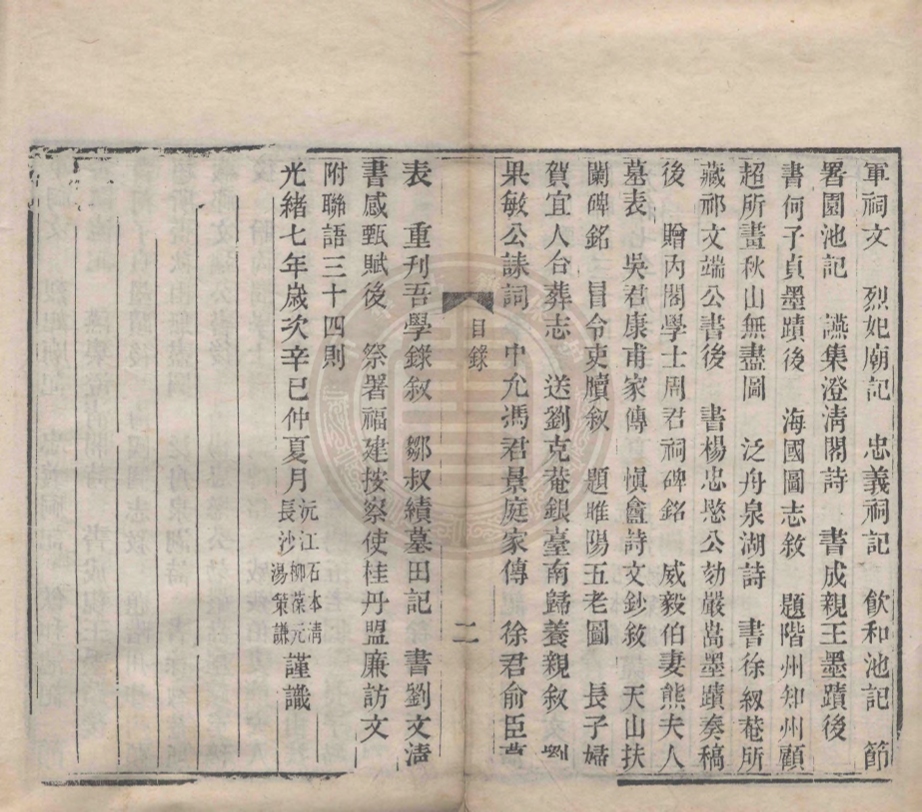 軍祠文　烈妃廟記　忠義祠記　飲和池記　節
署園池記　讌集澄清閣詩　書成親王墨蹟後
書何子貞墨蹟後　海國圖志敘　題階州知州顧
超所畫秋山無盡圖　泛舟泉湖詩　書徐紉菴所
藏祁文端公書後　書楊忠愍公劾嚴嵩墨蹟奏稿
後　贈內閣學士周君祠碑銘　威毅伯妻熊夫人
墓表　吳君康甫家傳　愼盦詩文鈔敘　天山扶
闌碑銘　冒令吏牘敘　題睢陽五老圖　長子婦
賀宜人台葬志　送劉克菴銀臺南歸養親敘　劉
果敏公誄詞　中允馮君景庭家傳　徐君俞臣墓
目錄　二
表　重刊吾學錄敘　鄒叔績墓田記　書劉文淸
書感甄賦後　祭署福建按察使桂丹盟廉訪文
附聯語三十四則
光緒七年歲次辛巳仲夏月沅江石本淸　長沙柳葆元湯策謙謹識